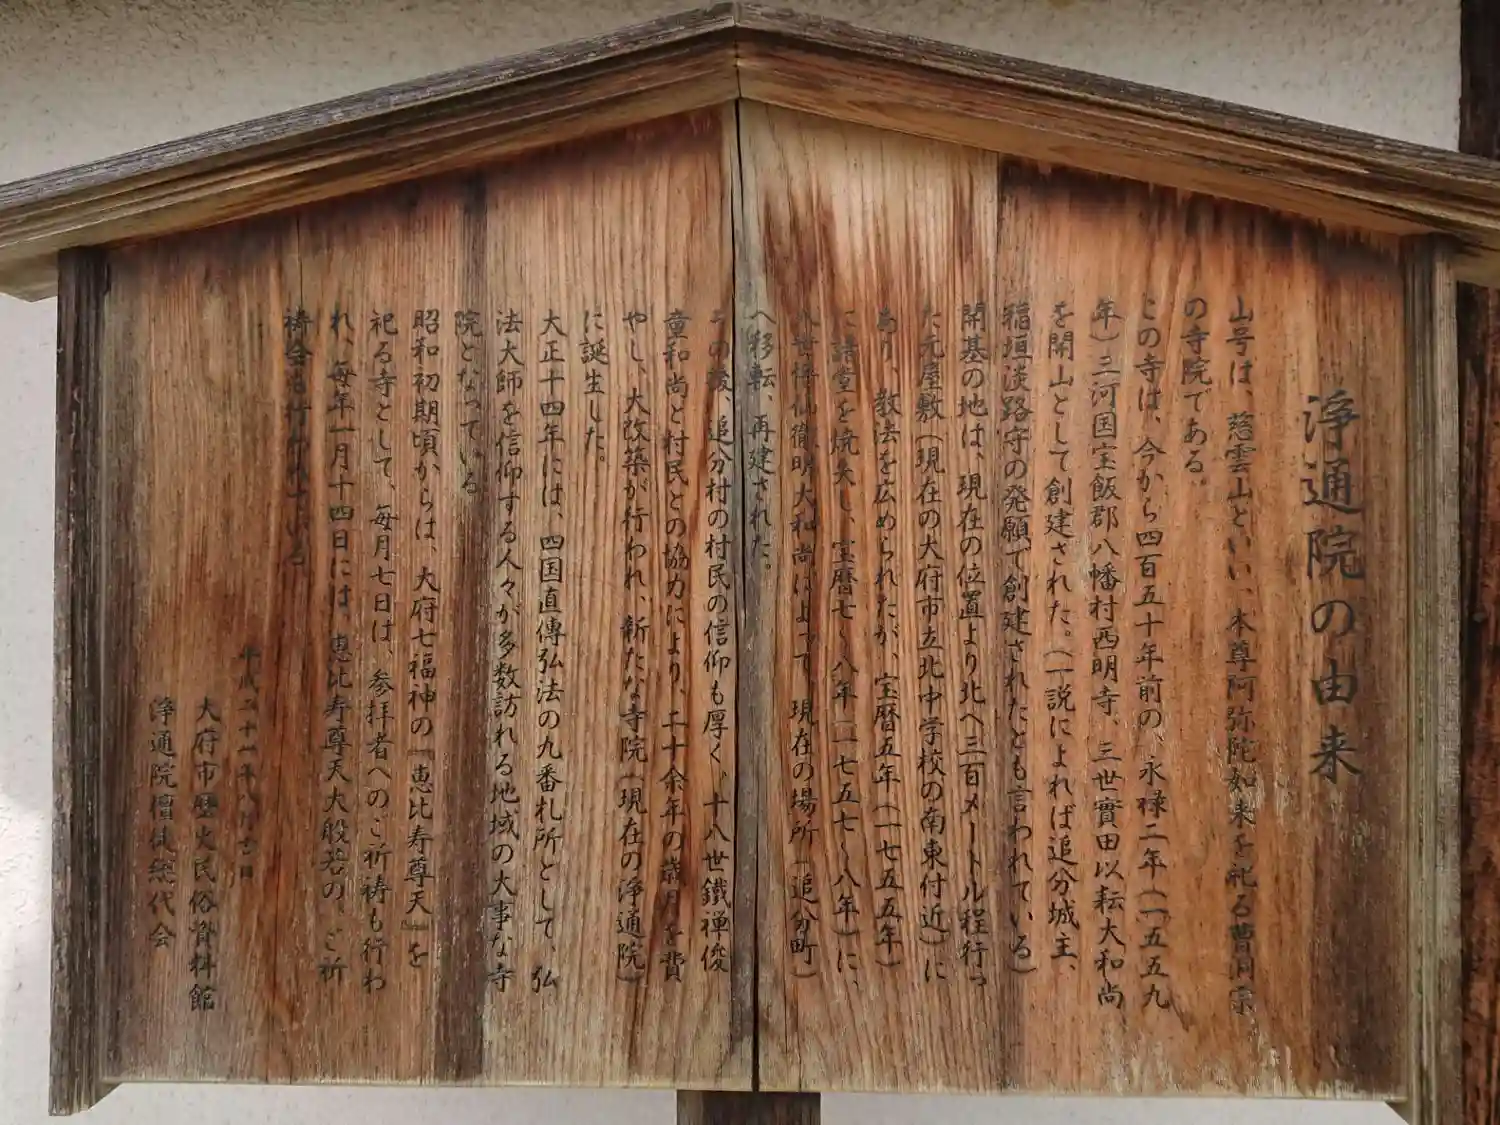 浄通院の由来
山号は、慈雲山といい、本尊阿弥陀如来を祀る曹洞宗
の寺院である。
この寺は、今から四百五十年前の、永禄二年（一五五九
年）三河国宝飯郡八幡村西明寺、三世實田以耘大和尚
を開山として創建された。（一説によれば追分城主、
稲垣淡路守の発願で創建されたとも言われている）
開基の地は、現在の位置より北へ三百メートル程行っ
た元屋敷（現在の大府市立北中学校の南東付近）に
あり、教法を広められたが、宝暦五年（一七五五年）
に諸堂を焼失し、宝暦七～八年（一七五七～八年）に、
八世悟仙徹明大和尚によって、現在の場所（追分町）
へ移転、再建された。
その後、追分村の村民の信仰も厚く、十八世鐵禅俊
童和尚と村民との協力により、二十余年の歳月を費
やし、大改築が行われ、新たな寺院（現在の浄通院）
に誕生した。
大正十四年には、四国直傳弘法の九番札所として、弘
法大師を信仰する人々が多数訪れる地域の大事な寺
院となっている。
昭和初期頃からは、大府七福神の『恵比寿尊天』を
祀る寺として、毎月七日は、参拝者へのご祈祷も行わ
れ、毎年一月十四日には、恵比寿尊天大般若の、ご祈
祷会も行われている
平成二十一年八月
大府市歴史民俗資料館
浄通院檀徒総代会